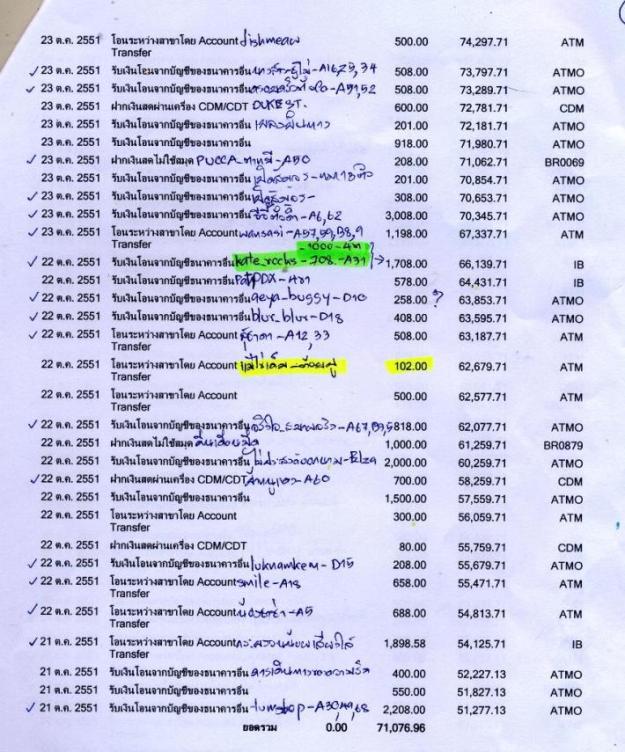 23 ต.ค. 2551 โอนระหว่างสาขาโดย Account dishmeaw 500.00 74,297.71 ATM
Transfer
23 ต.ค. 2551 รับเงินโอนจากบัญชีของธนาคารอื่น 508.00 73,797.71 ATMO
23 ต.ค. 2551 รับเงินโอนจากบัญชีของธนาคารอื่น -A51,52 508.00 73,289.71 ATMO
23 ต.ค. 2551 ฝากเงินสดผ่านเครื่อง CDM/CDT DUKE ST. 600.00 72,781.71 CDM
23 ต.ค. 2551 รับเงินโอนจากบัญชีของธนาคารอื่น 201.00 72,181.71 ATMO
23 ต.ค. 2551 รับเงินโอนจากบัญชีของธนาคารอื่น 918.00 71,980.71 ATMO
23 ต.ค. 2551 ฝากเงินสดไม่ใช้สมุด PUCCA 208.00 71,062.71 BR0069
23 ต.ค. 2551 รับเงินโอนจากบัญชีของธนาคารอื่น 201.00 70,854.71 ATMO
23 ต.ค. 2551 รับเงินโอนจากบัญชีของธนาคารอื่น 308.00 70,653.71 ATMO
23 ต.ค. 2551 รับเงินโอนจากบัญชีของธนาคารอื่น -A6,62 3,008.00 70,345.71 ATMO
23 ต.ค. 2551 โอนระหว่างสาขาโดย Account wansasi 1,198.00 67,337.71 ATM
Transfer -1000-
22 ต.ค. 2551 รับเงินโอนจากบัญชีธนาคารอื่น kate_rocks -708-A31 1,708.00 66,139.71 IB
22 ต.ค. 2551 รับเงินโอนจากบัญชีธนาคารอื่น 578.00 64,431.71 IB
22 ต.ค. 2551 รับเงินโอนจากบัญชีของธนาคารอื่น 258.00 ? 63,853.71 ATMO
22 ต.ค. 2551 รับเงินโอนจากบัญชีของธนาคารอื่น blur_blur-D18 408.00 63,595.71 ATMO
22 ต.ค. 2551 โอนระหว่างสาขาโดย Account -A12,33 508.00 63,187.71 ATM
Transfer
22 ต.ค. 2551 โอนระหว่างสาขาโดย Account 102.00 62,679.71 ATM
Transfer
22 ต.ค. 2551 โอนระหว่างสาขาโดย Account 500.00 62,577.71 ATM
Transfer
22 ต.ค. 2551 รับเงินโอนจากบัญชีของธนาคารอื่น 818.00 62,077.71 ATMO
22 ต.ค. 2551 ฝากเงินสดไม่ใช้สมุด 1,000.00 61,259.71 BR0879
22 ต.ค. 2551 รับเงินโอนจากบัญชีของธนาคารอื่น 2,000.00 60,259.71 ATMO
22 ต.ค. 2551 ฝากเงินสดผ่านเครื่อง CDM/CDT -A60 700.00 58,259.71 CDM
22 ต.ค. 2551 รับเงินโอนจากบัญชีของธนาคารอื่น 1,500.00 57,559.71 ATMO
22 ต.ค. 2551 โอนระหว่างสาขาโดย Account 300.00 56,059.71 ATM
Transfer
22 ต.ค. 2551 ฝากเงินสดผ่านเครื่อง CDM/CDT 80.00 55,759.71 CDM
22 ต.ค. 2551 รับเงินโอนจากบัญชีของธนาคารอื่น luknamkem - D15 208.00 55,679.71 ATMO
22 ต.ค. 2551 โอนระหว่างสาขาโดย Account smile-A18 658.00 55,471.71 ATM
Transfer
22 ต.ค. 2551 โอนระหว่างสาขาโดย Account -A5 688.00 54,813.71 ATM
Transfer
21 ต.ค. 2551 โอนระหว่างสาขาโดย Account 1,898.58 54,125.71 IB
Transfer
21 ต.ค. 2551 รับเงินโอนจากบัญชีของธนาคารอื่น 400.00 52,227.13 ATMO
21 ต.ค. 2551 รับเงินโอนจากบัญชีของธนาคารอื่น 550.00 51,827.13 ATMO
21 ต.ค. 2551 รับเงินโอนจากบัญชีของธนาคารอื่น 2,208.00 51,277.13 ATMO
ยอดรวม 0.00 71,076.96